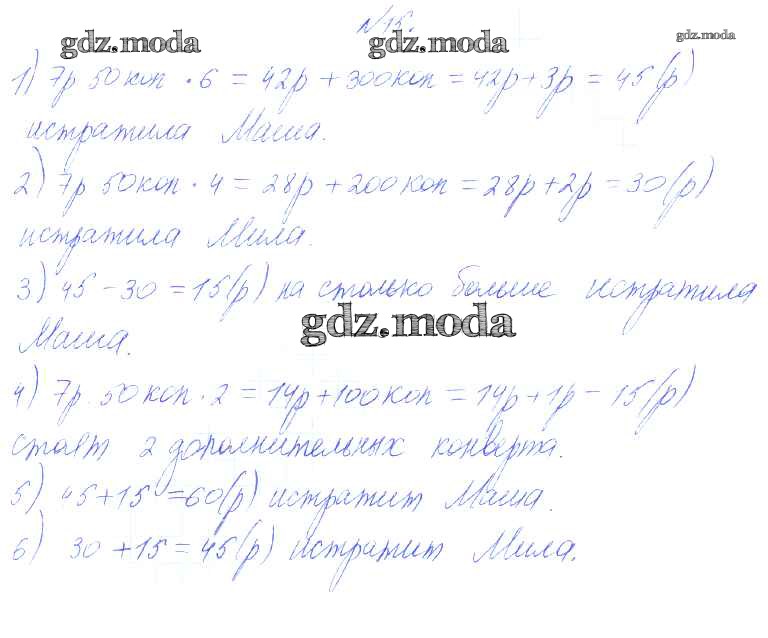 №15.
gdz.moda gdz.moda gdz.moda
1) 7р 50коп · 6 = 42р + 300коп = 42р + 3р = 45(р)
истратила Маша.
2) 7р 50коп · 4 = 28р + 200коп = 28р + 2р = 30(р)
истратила Мила.
3) 45 - 30 = 15(р) на столько больше истратила
gdz.moda
Маша.
4) 7р. 50коп · 2 = 14р + 100коп = 14р + 1р = 15(р)
стоят 2 дополнительных конверта.
5) 45 + 15 = 60(р) истратит Маша.
6) 30 + 15 = 45(р) истратит Мила.